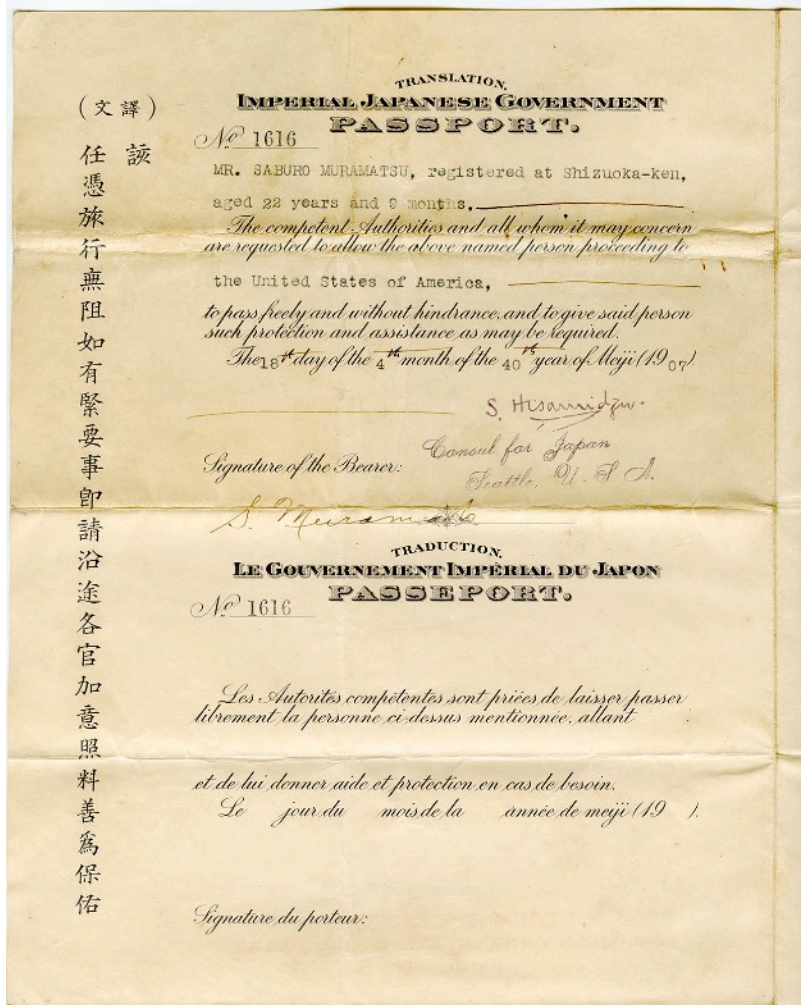 (譯文)
該
任憑旅行無阻如有緊要事卽請沿途各官加意照料善爲保佑
TRANSLATION.
IMPERIAL JAPANESE GOVERNMENT
PASSPORT.
No 1616
MR. SABURO MURAMATSU, registered at Shizuoka-ken,
aged 22 years and 9 months.
The competent Authorities and all whom it may concern
are requested to allow the above named person proceeding to
the United States of America,
to pass freely and without hindrance, and to give said person
such protection and assistance as may be required.
The 18th day of the 4th month of the 40th year of Meiji (1907).
S. Hisamidzu.
Consul for Japan
Seattle, U. S. A.
Signature of the Bearer:
S. Muramatsu
TRADUCTION.
LE GOUVERNEMENT IMPÉRIAL DU JAPON
PASSEPORT.
No 1616
Les Autorités compétentes sont priées de laisser passer
librement la personne ci-dessus mentionnée, allant
et de lui donner aide et protection en cas de besoin.
Le jour du mois de la année de meiji (19 ).
Signature du porteur: